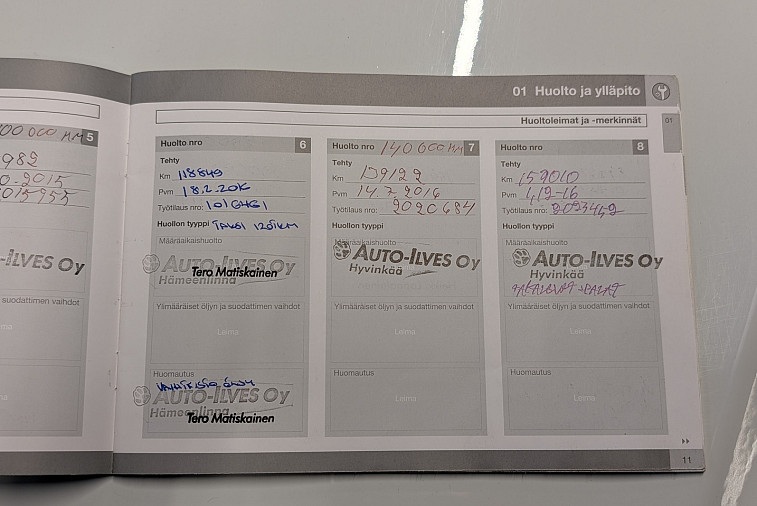 01 Huolto ja ylläpito
Huoltoleimat ja -merkinnät
01
5
982
2015
-ILVES Oy
suodattimen vaihdot
Huolto nro 6
Tehty
Km 118849
Pvm 18.2.2016
Työtilaus nro:
Huollon tyyppi
Määräaikaishuolto
AUTO-ILVES Oy
Hämeenlinna
Tero Matiskainen
Ylimääräiset öljyn ja suodattimen vaihdot
Leima
Huomautus
AUTO-ILVES Oy
Hämeenlinna
Tero Matiskainen
Huolto nro 140 000 KM 7
Tehty
Km 139122
Pvm 14.7.2016
Työtilaus nro: 2020684
Huollon tyyppi
Määräaikaishuolto
AUTO-ILVES Oy
Hyvinkää
Ylimääräiset öljyn ja suodattimen vaihdot
Leima
Huomautus
Leima
Huolto nro 8
Tehty
Km 159010
Pvm 1,12-16
Työtilaus nro:
Huollon tyyppi
Määräaikaishuolto
AUTO-ILVES Oy
Hyvinkää
Ylimääräiset öljyn ja suodattimen vaihdot
Leima
Huomautus
Leima
11